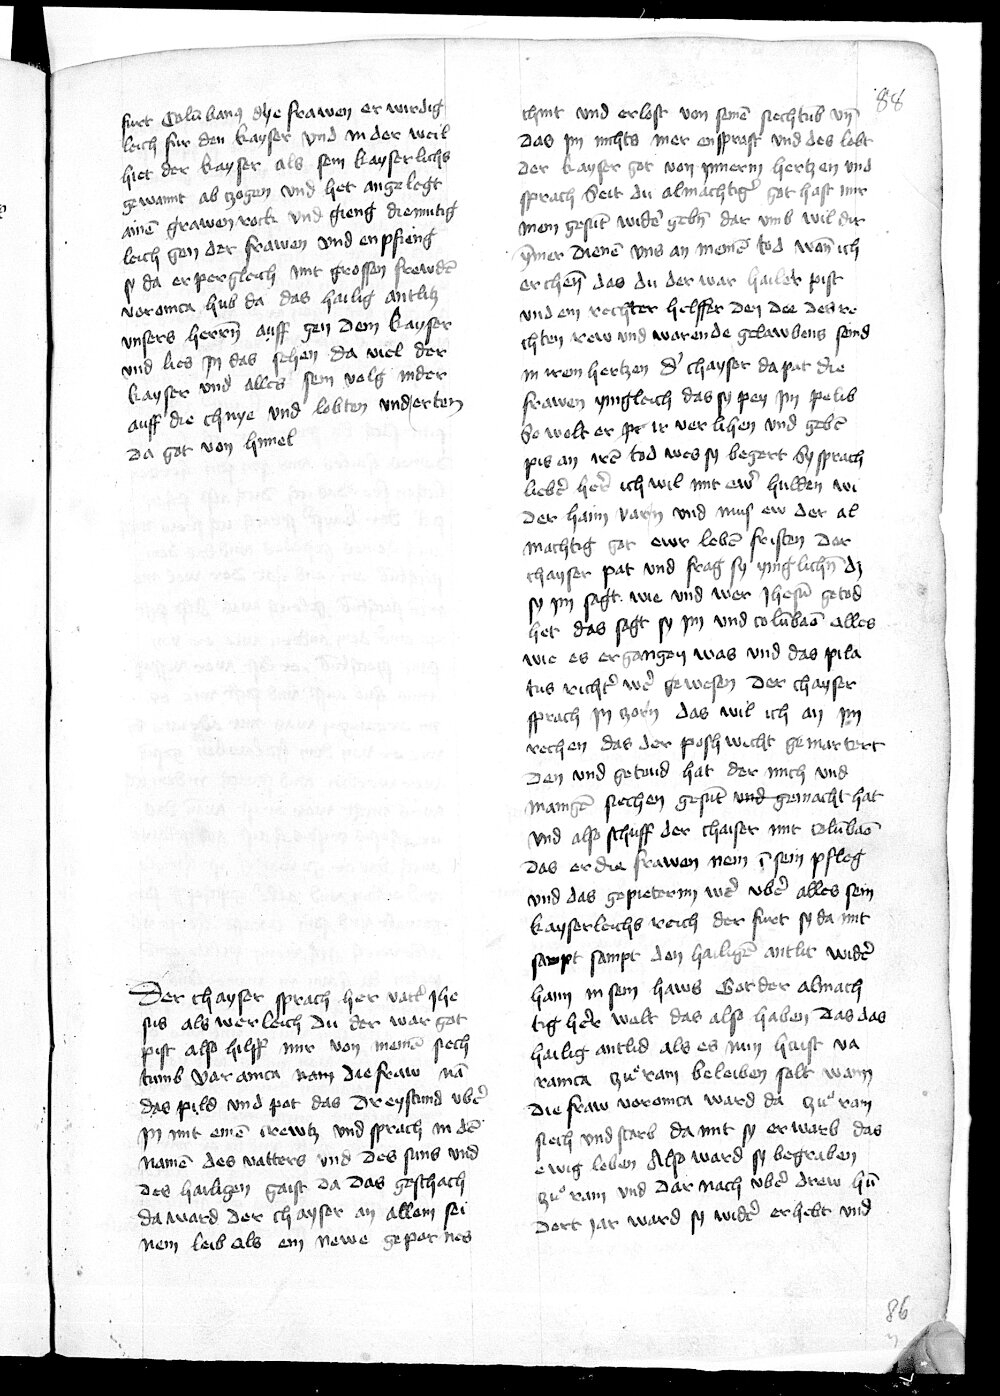 furt Colūbanꝰ dye frawen er wirdig
leich fur den kayser vnd in der weil
hiet der kayser als sein kayserlichs
gewannt ab tzogen vnd het angelegt
ainē grawen rock vnd gieng diemutig
leich gen der frawen vnd enpfieng
sy da erpergleich mit grossen frewdē
voronica hub da das hailig antlitz
vnsers herrn̄ auff gen dem kayser
vnd lies in das sehen da viel der
kayser vnd alles sein volg nider
auff die chnye vnd lobten vnd erten
da got von himel
Der chayser sprach her vatr̄ Jhe
sus als werleich du der war got
pist also hilff mir von meinē siech
tumb Varonica nam die fraw nā
das pild vnd pot das dreystund vbr̄
in mit einē crewtz vnd sprach in dē
namē des vatters vnd des suns vnd
des hailigen gaist da das geschach
da ward der chayser an allem sei
nem leib als ein newe gepornes
88
chint vnd erlost von seinē siechtūb vn̄
das im nichts mer ensprast vnd des lobt
der kayser got von ynnerm hertzen vnd
sprach Seit du almachtigr̄ got hast mir
mein gesūt widr̄ gebn̄ dar vmb wil dir
ymer dienē vns an meinē tod wan̄ ich
erchen̄ das du der war hailer pist
vnd ein rechter helffer den die des re
chten rew vnd warende gelawbens seind
in iren hertzen dr̄ chayser da pat die
frawen yngleich das sy pey im pelib
So wolt er ir verlihen vnd gebē
pis an irē tod wes sy begert Sy sprach
liebr̄ hr̄ ich wil mit ewr̄ hulden wi
der haim varn vnd mus ew der al
machtig got ewr lebē fristen Der
chayser pat vnd frag sy yngklichn̄ dz
sy im sagt wie vnd wer Jhesū getod
het das sagt sy im vnd colūbaō alles
wie es ergangen was vnd das pila
tus richtr̄ wr̄ gewesen Der chayser
sprach in tzorn das wil ich an im
rechen das der poshwicht gemartert
den vnd getoud hat der mich vnd
manigē siechen gesūt vnd gemacht hat
vnd also schuff der chaiser mit colūbaō
das er die frawen nem ī sein pfleg
vnd das gepieterin wr̄ vbr̄ alles sein
kayserleichs reich der furt sy da mit
sampt sampt den hailigē antlit widr̄
haim in sein haws Got der almach
tig her̄ wolt das also haben das das
hailig antlid als es nun haist va
ranica zuͦ ram beleiben solt wann
die fraw voronica ward da zuͦ ram
siech vnd starb da mit sy erwarb das
ewig leben Also ward sy begraben
zuͦ ram vnd dar nach vbr̄ drew hū
dert jar ward sy widr̄ erhebt vnd
86